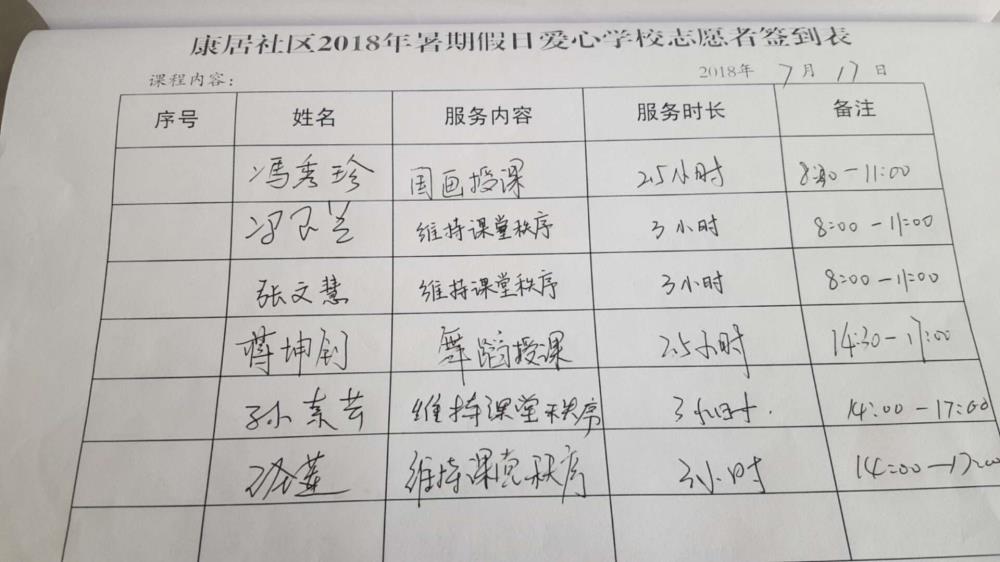 康居社区2018年暑期假日爱心学校志愿者签到表
课程内容: 2018年 7月 17日
序号 姓名 服务内容 服务时长 备注
冯秀珍 国画授课 2.5小时 8:30-11:00
冯 兰 维持课堂秩序 3小时 8:00-11:00
张文慧 维持课堂秩序 3小时 8:00-11:00
蒋坤钊 舞蹈授课 2.5小时 14:30-17:00
孙素芸 维持课堂秩序 3小时. 14:00-17:00
维持课堂秩序 3小时 14:00-17:00